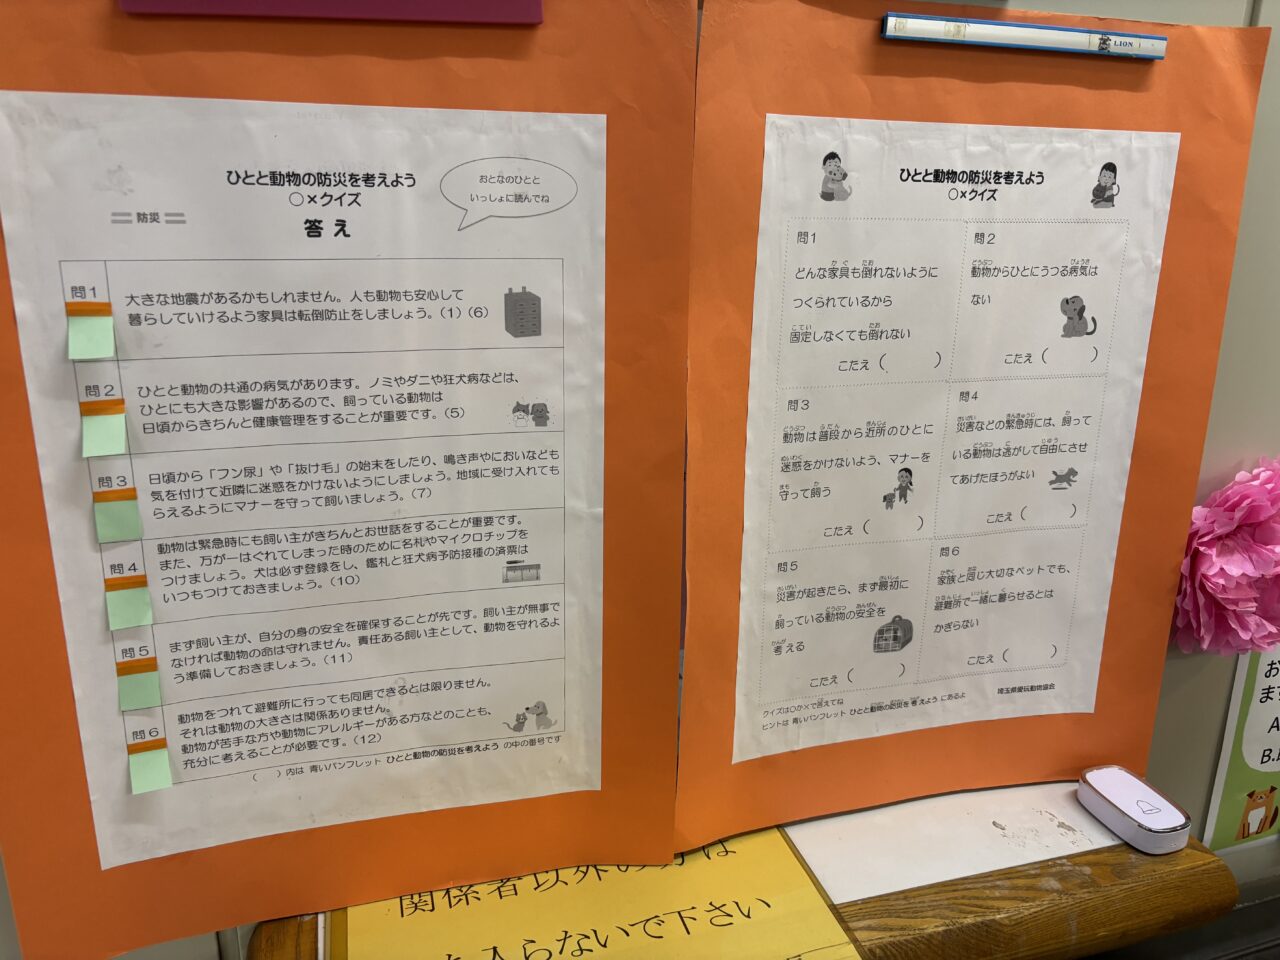 ひとと動物の防災を考えよう
○×クイズ
答え
防災
おとなのひとと
いっしょに読んでね
問1
大きな地震があるかもしれません。人も動物も安心して
暮らしていけるよう家具は転倒防止をしましょう。(1)(6)
問2
ひとと動物の共通の病気があります。ノミやダニや狂犬病などは、
ひとにも大きな影響があるので、飼っている動物は
日頃からきちんと健康管理をすることが重要です。(5)
問3
日頃から「フン尿」や「抜け毛」の始末をしたり、鳴き声やにおいなども
気を付けて近隣に迷惑をかけないようにしましょう。地域に受け入れても
らえるようにマナーを守って飼いましょう。(7)
問4
動物は緊急時にも飼い主がきちんとお世話をすることが重要です。
また、万が一はぐれてしまった時のために名札やマイクロチップを
つけましょう。犬は必ず登録をし、鑑札と狂犬病予防接種の済票は
いつもつけておきましょう。(10)
問5
まず飼い主が、自分の身の安全を確保することが先です。飼い主が無事で
なければ動物の命は守れません。責任ある飼い主として、動物を守れるよ
う準備しておきましょう。(11)
問6
動物をつれて避難所に行っても同居できるとは限りません。
それは動物の大きさは関係ありません。
動物が苦手な方や動物にアレルギーがある方などのことも、
充分に考えることが必要です。(12)
( )内は 青いパンフレット ひとと動物の防災を考えよう の中の番号です
LION
ひとと動物の防災を考えよう
○×クイズ
問1
どんな家具も倒れないように
つくられているから
固定しなくても倒れない
こたえ( )
問2
動物からひとにうつる病気は
ない
こたえ( )
問3
動物は普段から近所のひとに
迷惑をかけないよう、マナーを
守って飼う
こたえ( )
問4
災害などの緊急時には、飼って
いる動物は逃がして自由にさせ
てあげたほうがよい
こたえ( )
問5
災害が起きたら、まず最初に
飼っている動物の安全を
考える
こたえ( )
問6
家族と同じ大切なペットでも、
避難所で一緒に暮らせるとは
かぎらない
こたえ( )
クイズは○か×で答えてね
ヒントは 青いパンフレット ひとと動物の防災を考えよう にあるよ
埼玉県愛玩動物協会
関係者以外の方は
入らないで下さい